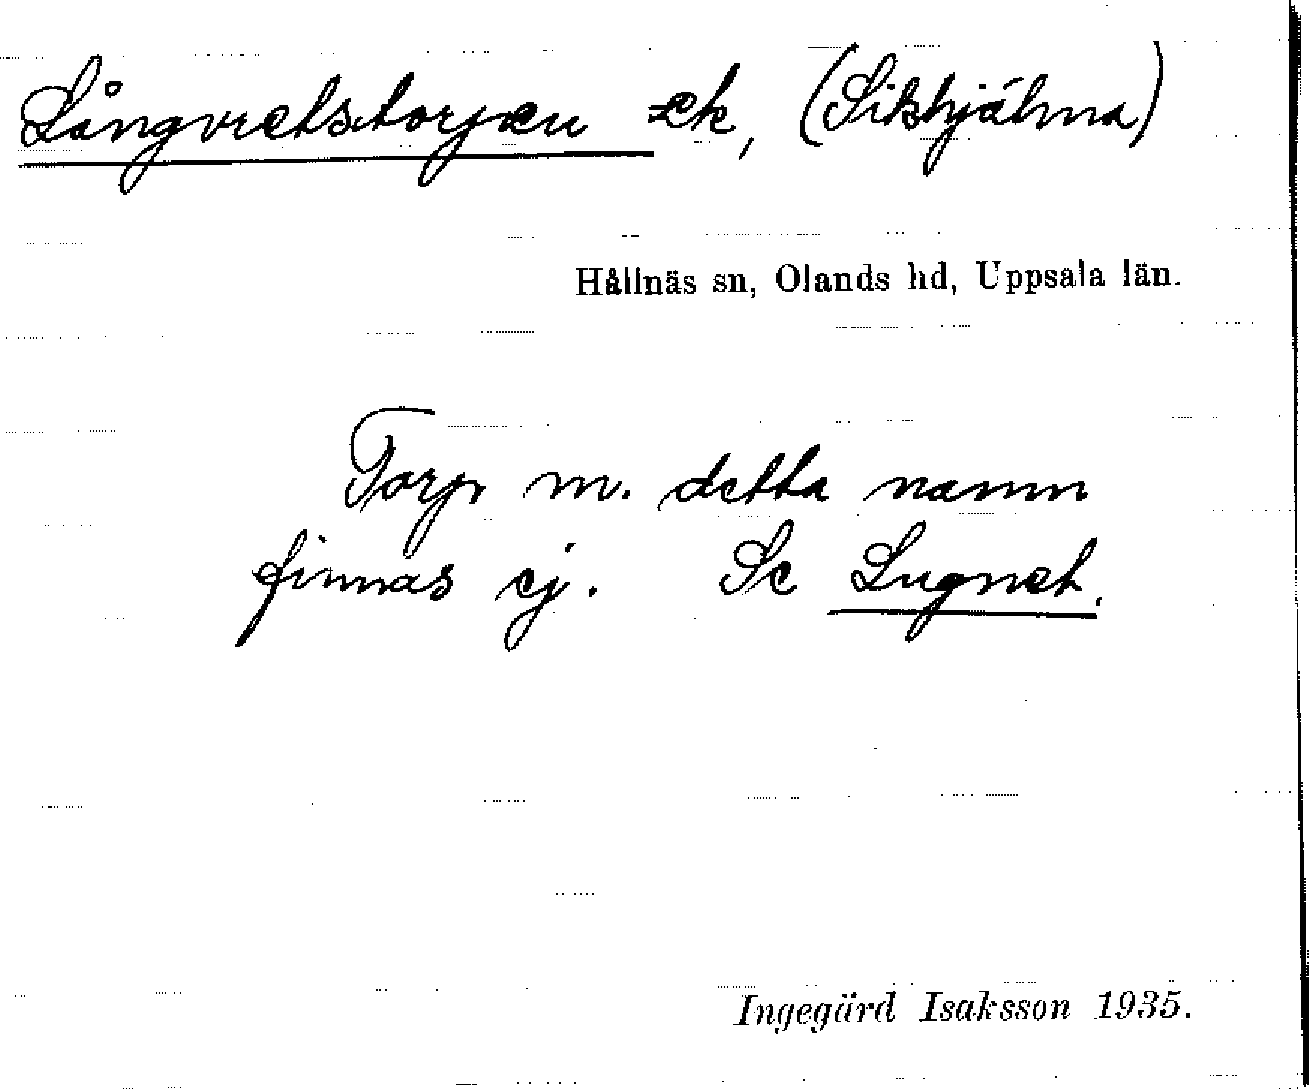 Långvretstorpen ek, (Sikhjälma)
Hållnäs sn, Olands hd, Uppsala län.
Torp m. detta namn
finnas ej. Se Lugnet.
Ingegärd Isaksson 1935.